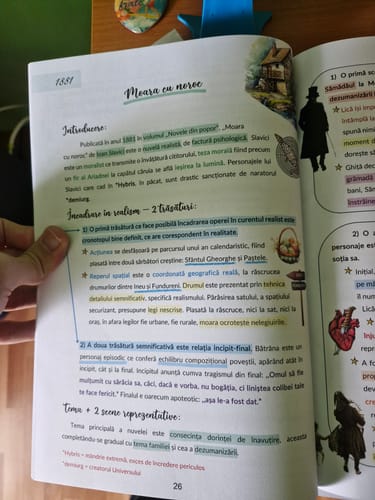 1881
Moara cu noroc
Introducere:
Publicată în anul 1881 în volumul „Novele din popor", „Moara
cu noroc" de Ioan Slavici este o nuvelă realistă, de factură psihologică. Slavici
este un moralist ce transmite o învățătură cititorului, teza morală fiind precum
un fir al Ariadnei la capătul căruia se află ieșirea la lumină. Personajele lui
Slavici care cad in *Hybris, în păcat, sunt drastic sancționate de naratorul
*demiurg.
Încadrare în realism – 2 trăsături:
1) O primă trăsătură ce face posibilă încadrarea operei în curentul realist este
cronotopul bine definit, ce are corespondent în realitate.
Acțiunea se desfășoară pe parcursul unui an calendaristic, fiind
plasată între două sărbători creștine: Sfântul Gheorghe și Paștele.
Reperul spațial este o coordonată geografică reală, la răscrucea
drumurilor dintre Ineu și Fundureni. Drumul este prezentat prin tehnica
detaliului semnificativ, specifică realismului. Părăsirea satului, a spațiului
securizant, presupune legi nescrise. Plasată la răscruce, nici la sat, nici la
oraș, în afara legilor fie urbane, fie rurale, moara ocrotește nelegiuirile.
2) A doua trăsătură semnificativă este relația incipit-final. Bătrâna este un
personaj episodic ce conferă echilibru compozițional poveștii, apărând atât în
incipit, cât și la final. Incipitul anunță cumva tragismul din final: „Omul să fie
mulțumit cu sărăcia sa, căci, dacă e vorba, nu bogăția, ci liniștea colibei tale
te face fericit." Finalul e oarecum apoteotic: „așa le-a fost dat."
Tema + 2 scene reprezentative:
Tema principală a nuvelei este consecința dorinței de înavuțire, aceasta
completându-se gradual cu tema familiei și cea a dezumanizării.
*Hybris = mândrie extremă, exces de încredere periculos
*demiurg = creatorul Universului
26
1) O primă sc
Sămădăul la M
dezumanizării
Lică își im
întâmplă la
spună nim
moment d
dorește să
Ghiță dec
grămadă
bani, Săm
înstrăine
2) O a
personaje est
soția sa.
Inițial,
pe mâ
il